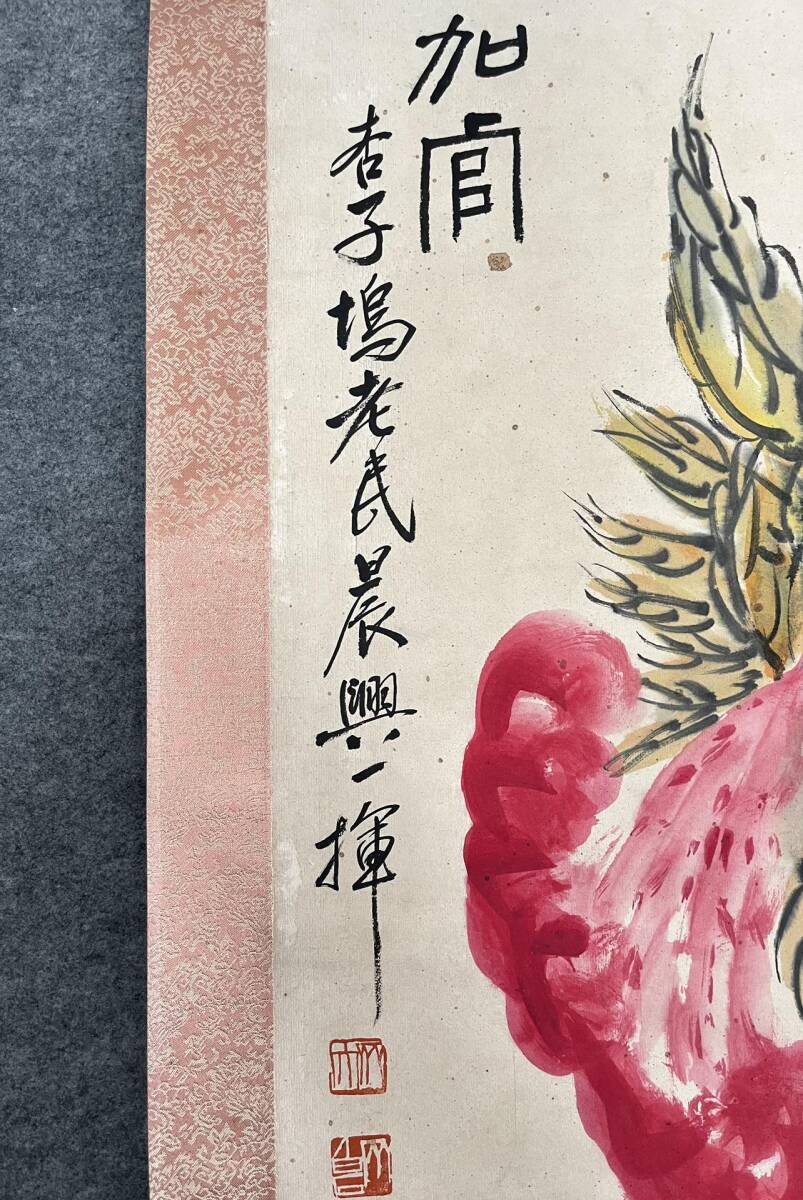 加官
杏子塢老民晨興一揮